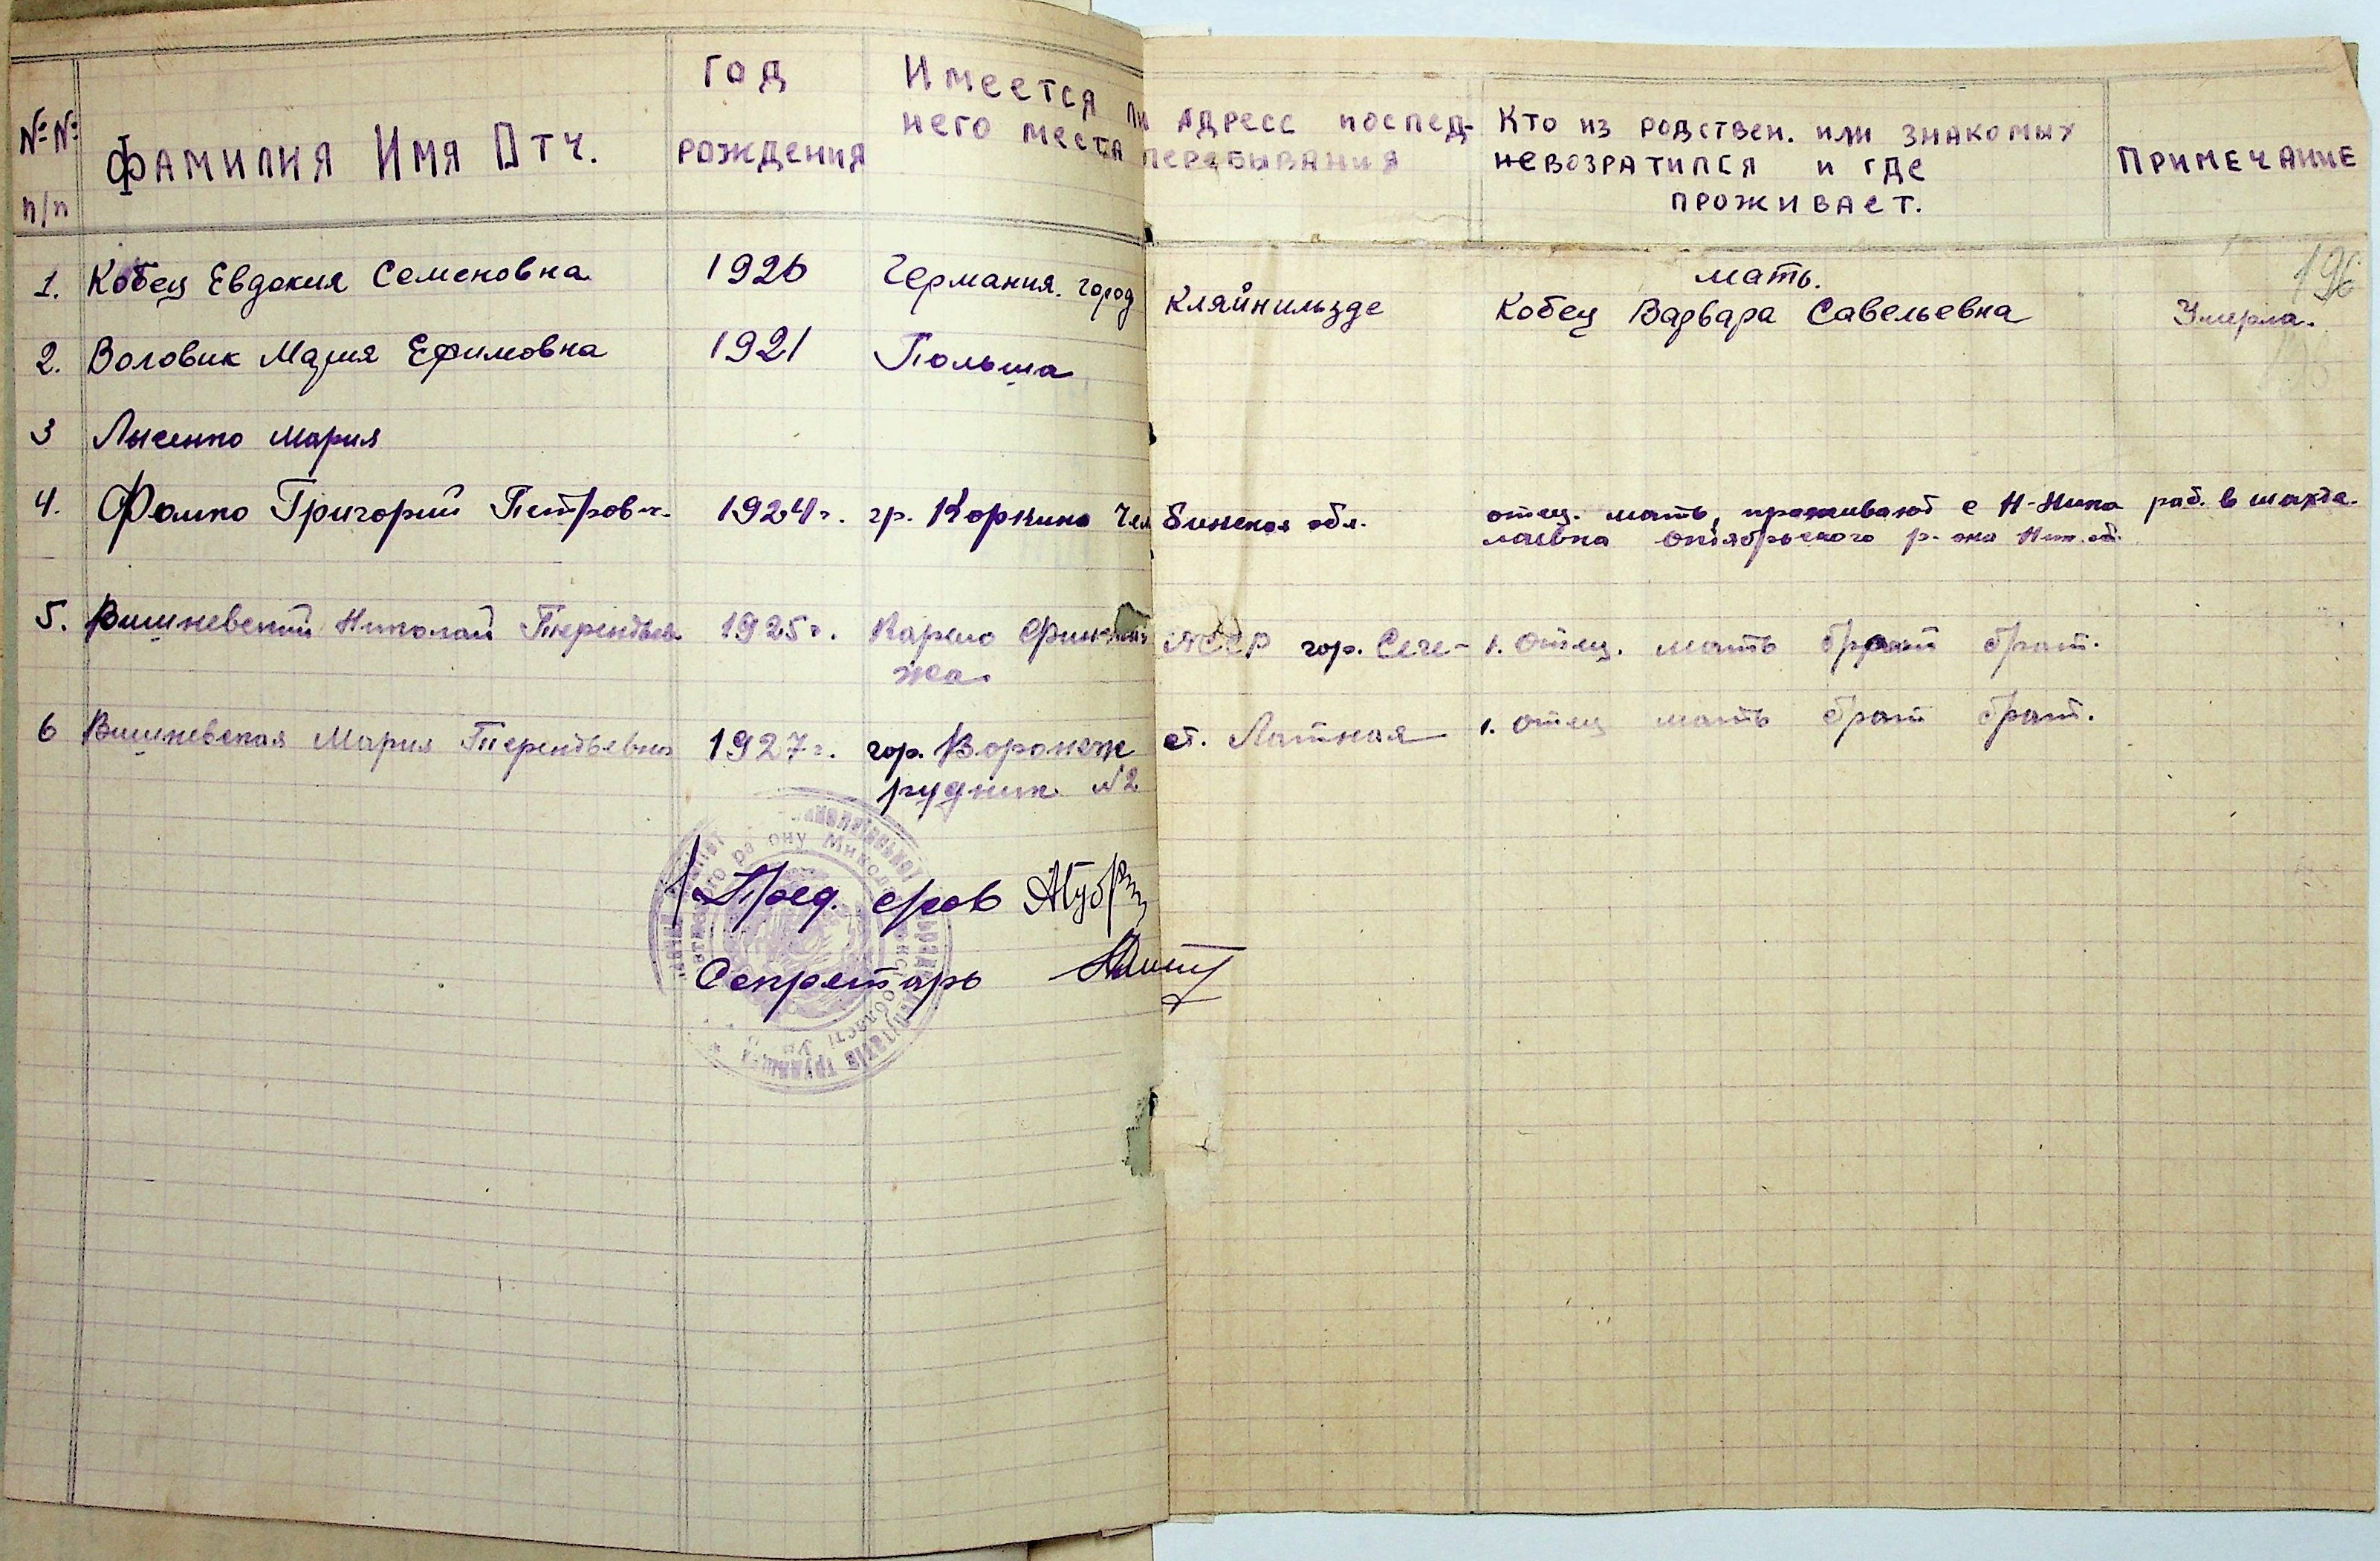 № № п/п
Фамилия Имя Отч.
Год рождения
Имеется ли адресс послед-
него места перебывания
Кто из родствен. или знакомых
невозратился и где
проживает.
Примечание
196
1. Кобец Евдокия Семеновна 1926 Германия. город Кляйнильзде мать.
Кобец Варвара Савельевна Умерла.
2. Воловик Мария Ефимовна 1921 Польша
3 Лысенко Мария
4. Фомко Григорий Петров. 1924 г. гр. Коркино Челбинская обл. отец. мать, проживают с Н-Нико раб. в шахте.
лаевка Октябрьского р-она Ник. об.
5. Вишневский Николай Терентьев. 1925 г. Карело Финская АССР гор. Сеге- 1. отец. мать брат брат.
жа.
6 Вишневская Мария Терентьевна 1927 г. гор. Воронеж ст. Латная 1. отец мать брат брат.
рудник №2
Пред. с/сов
Секретарь